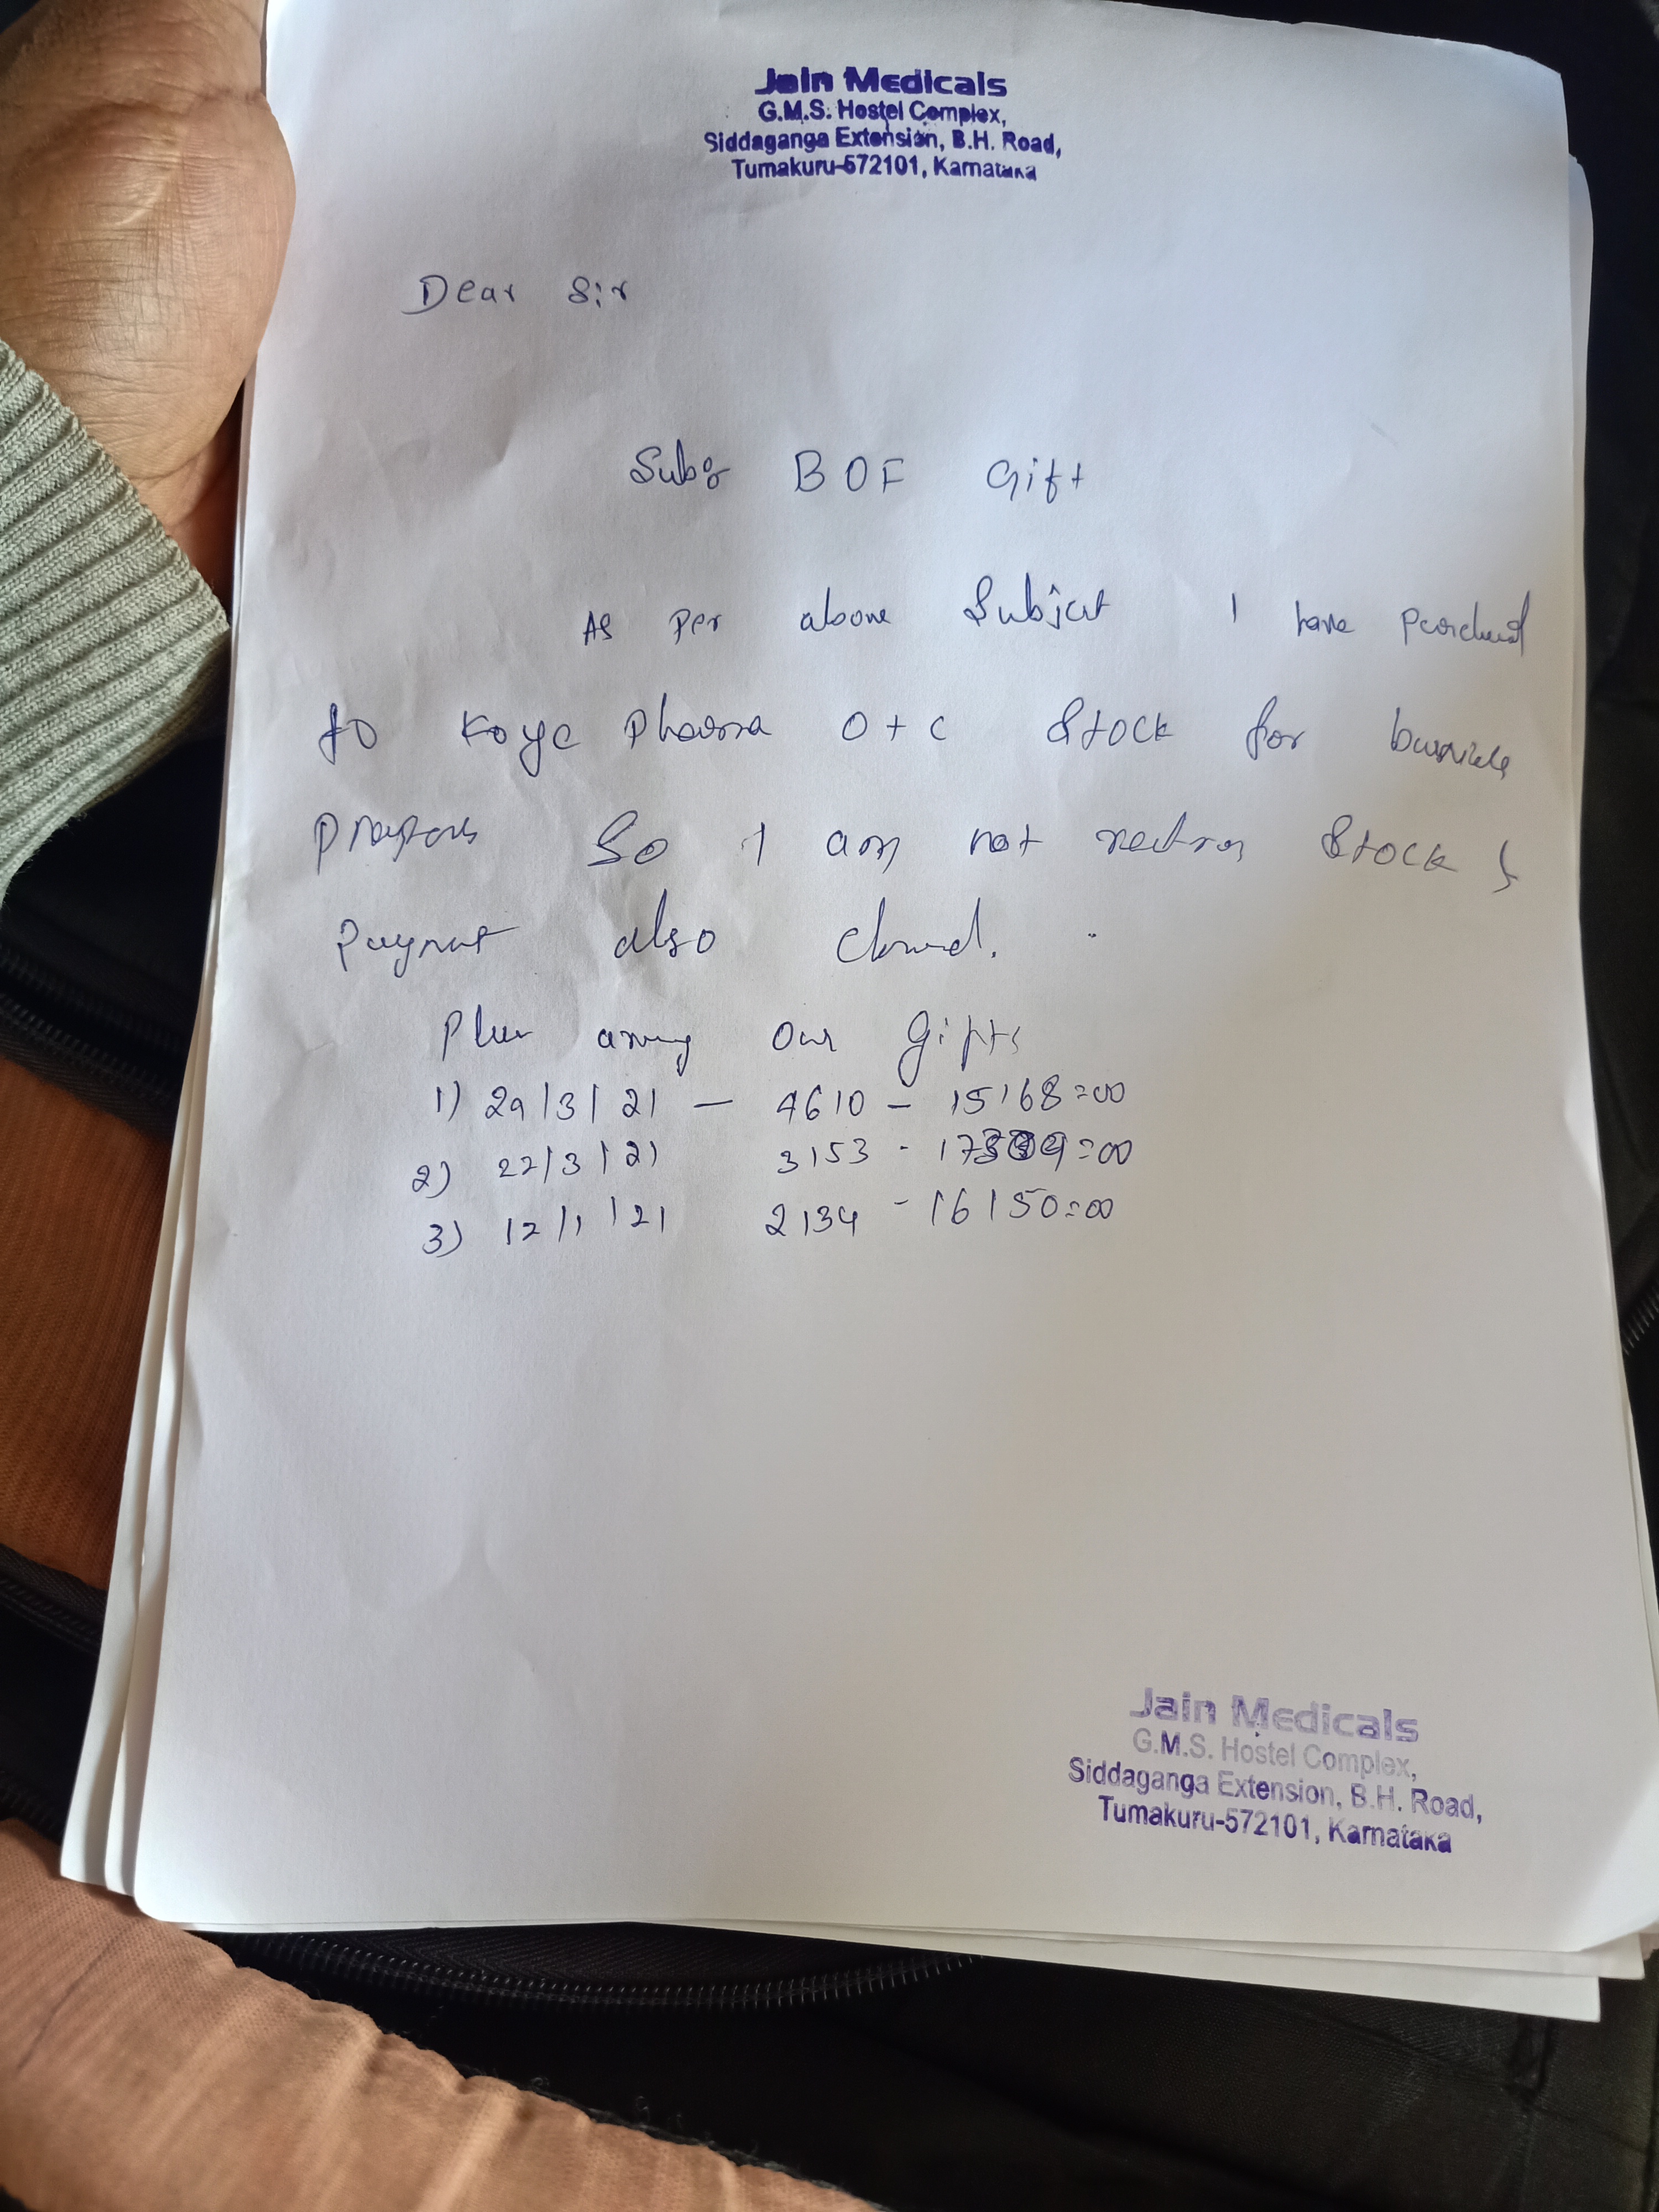 Jain Medicals
G.M.S. Hostel Complex,
Siddaganga Extension, B.H. Road,
Tumakuru-572101, Karnataka
Dear Sir
Sub: BOF Gift
As per above Subject I have
to Koye Pharma OTC Stock for
So I am not Stock &
also
our gifts
1) 29/3/21 - 4610 - 15168=00
2) 22/3/21 3153 -
3) 12/1/21 2134 - 16150=00
Jain Medicals
G.M.S. Hostel Complex,
Siddaganga Extension, B.H. Road,
Tumakuru-572101, Karnataka